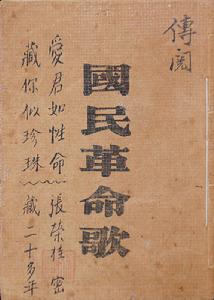 傳閱
國民革命歌
愛君如性命 張榮桂密
藏你似珍珠 藏二十多年